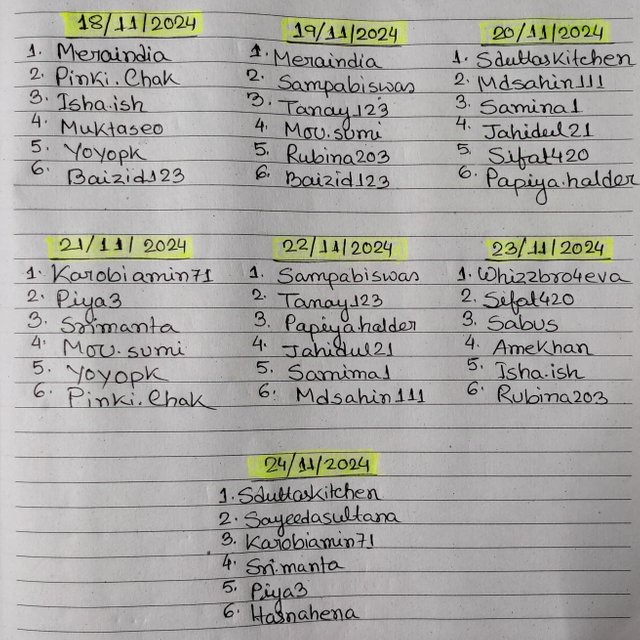 18/11/2024
1. Meraindia
2. Pinki.Chak
3. Isha.ish
4. Muktaseo
5. Yoyopk
6. Baizid123
19/11/2024
1. Meraindia
2. Sampabiswas
3. Tanay123
4. Mou.sumi
5. Rubina203
6. Baizid123
20/11/2024
1. Sduttaskitchen
2. Mdsahin111
3. Samina1
4. Jahidul21
5. Sifat420
6. Papiya.halder
21/11/2024
1. Karobiamin71
2. Piya3
3. Srimanta
4. Mou.sumi
5. Yoyopk
6. Pinki.Chak
22/11/2024
1. Sampabiswas
2. Tanay123
3. Papiya.halder
4. Jahidul21
5. Samima1
6. Mdsahin111
23/11/2024
1. Whizzbro4eva
2. Sifat420
3. Sabus
4. Amekhan
5. Isha.ish
6. Rubina203
24/11/2024
1. Sduttaskitchen
2. Sayeedasultana
3. Karobiamin71
4. Sri.manta
5. Piya3
6. Hasnahena